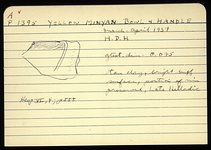 A
P 1395 YELLOW MINYAN BOWL & HANDLE
March-April 1937
H.D.H.
Gtest. dim. : 0.075
Tan clay, bright buff
surface, portion of rim
preserved, Late Helladic